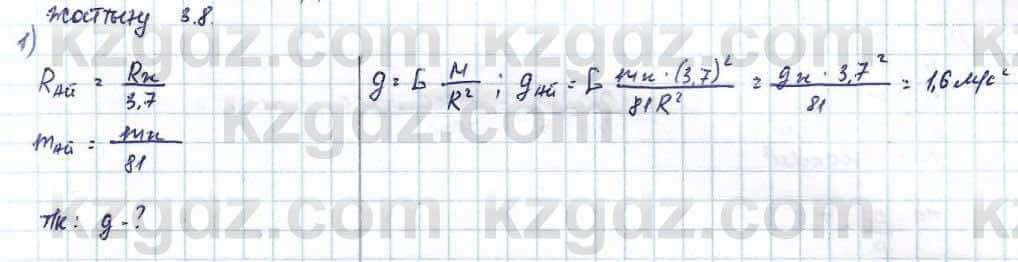 жаттығу 3.8.
1)
Rай = Rж / 3,7
mай = mж / 81
Т/к: g - ?
g = G M / R²; gай = G mж · (3,7)² / 81R² = gж · 3,7² / 81 = 1,6 м/с²
kzgdz.com kzgdz.com kzgdz.com
kzgdz.com kzgdz.com
kzgdz.com kzgdz.com kzgdz.com